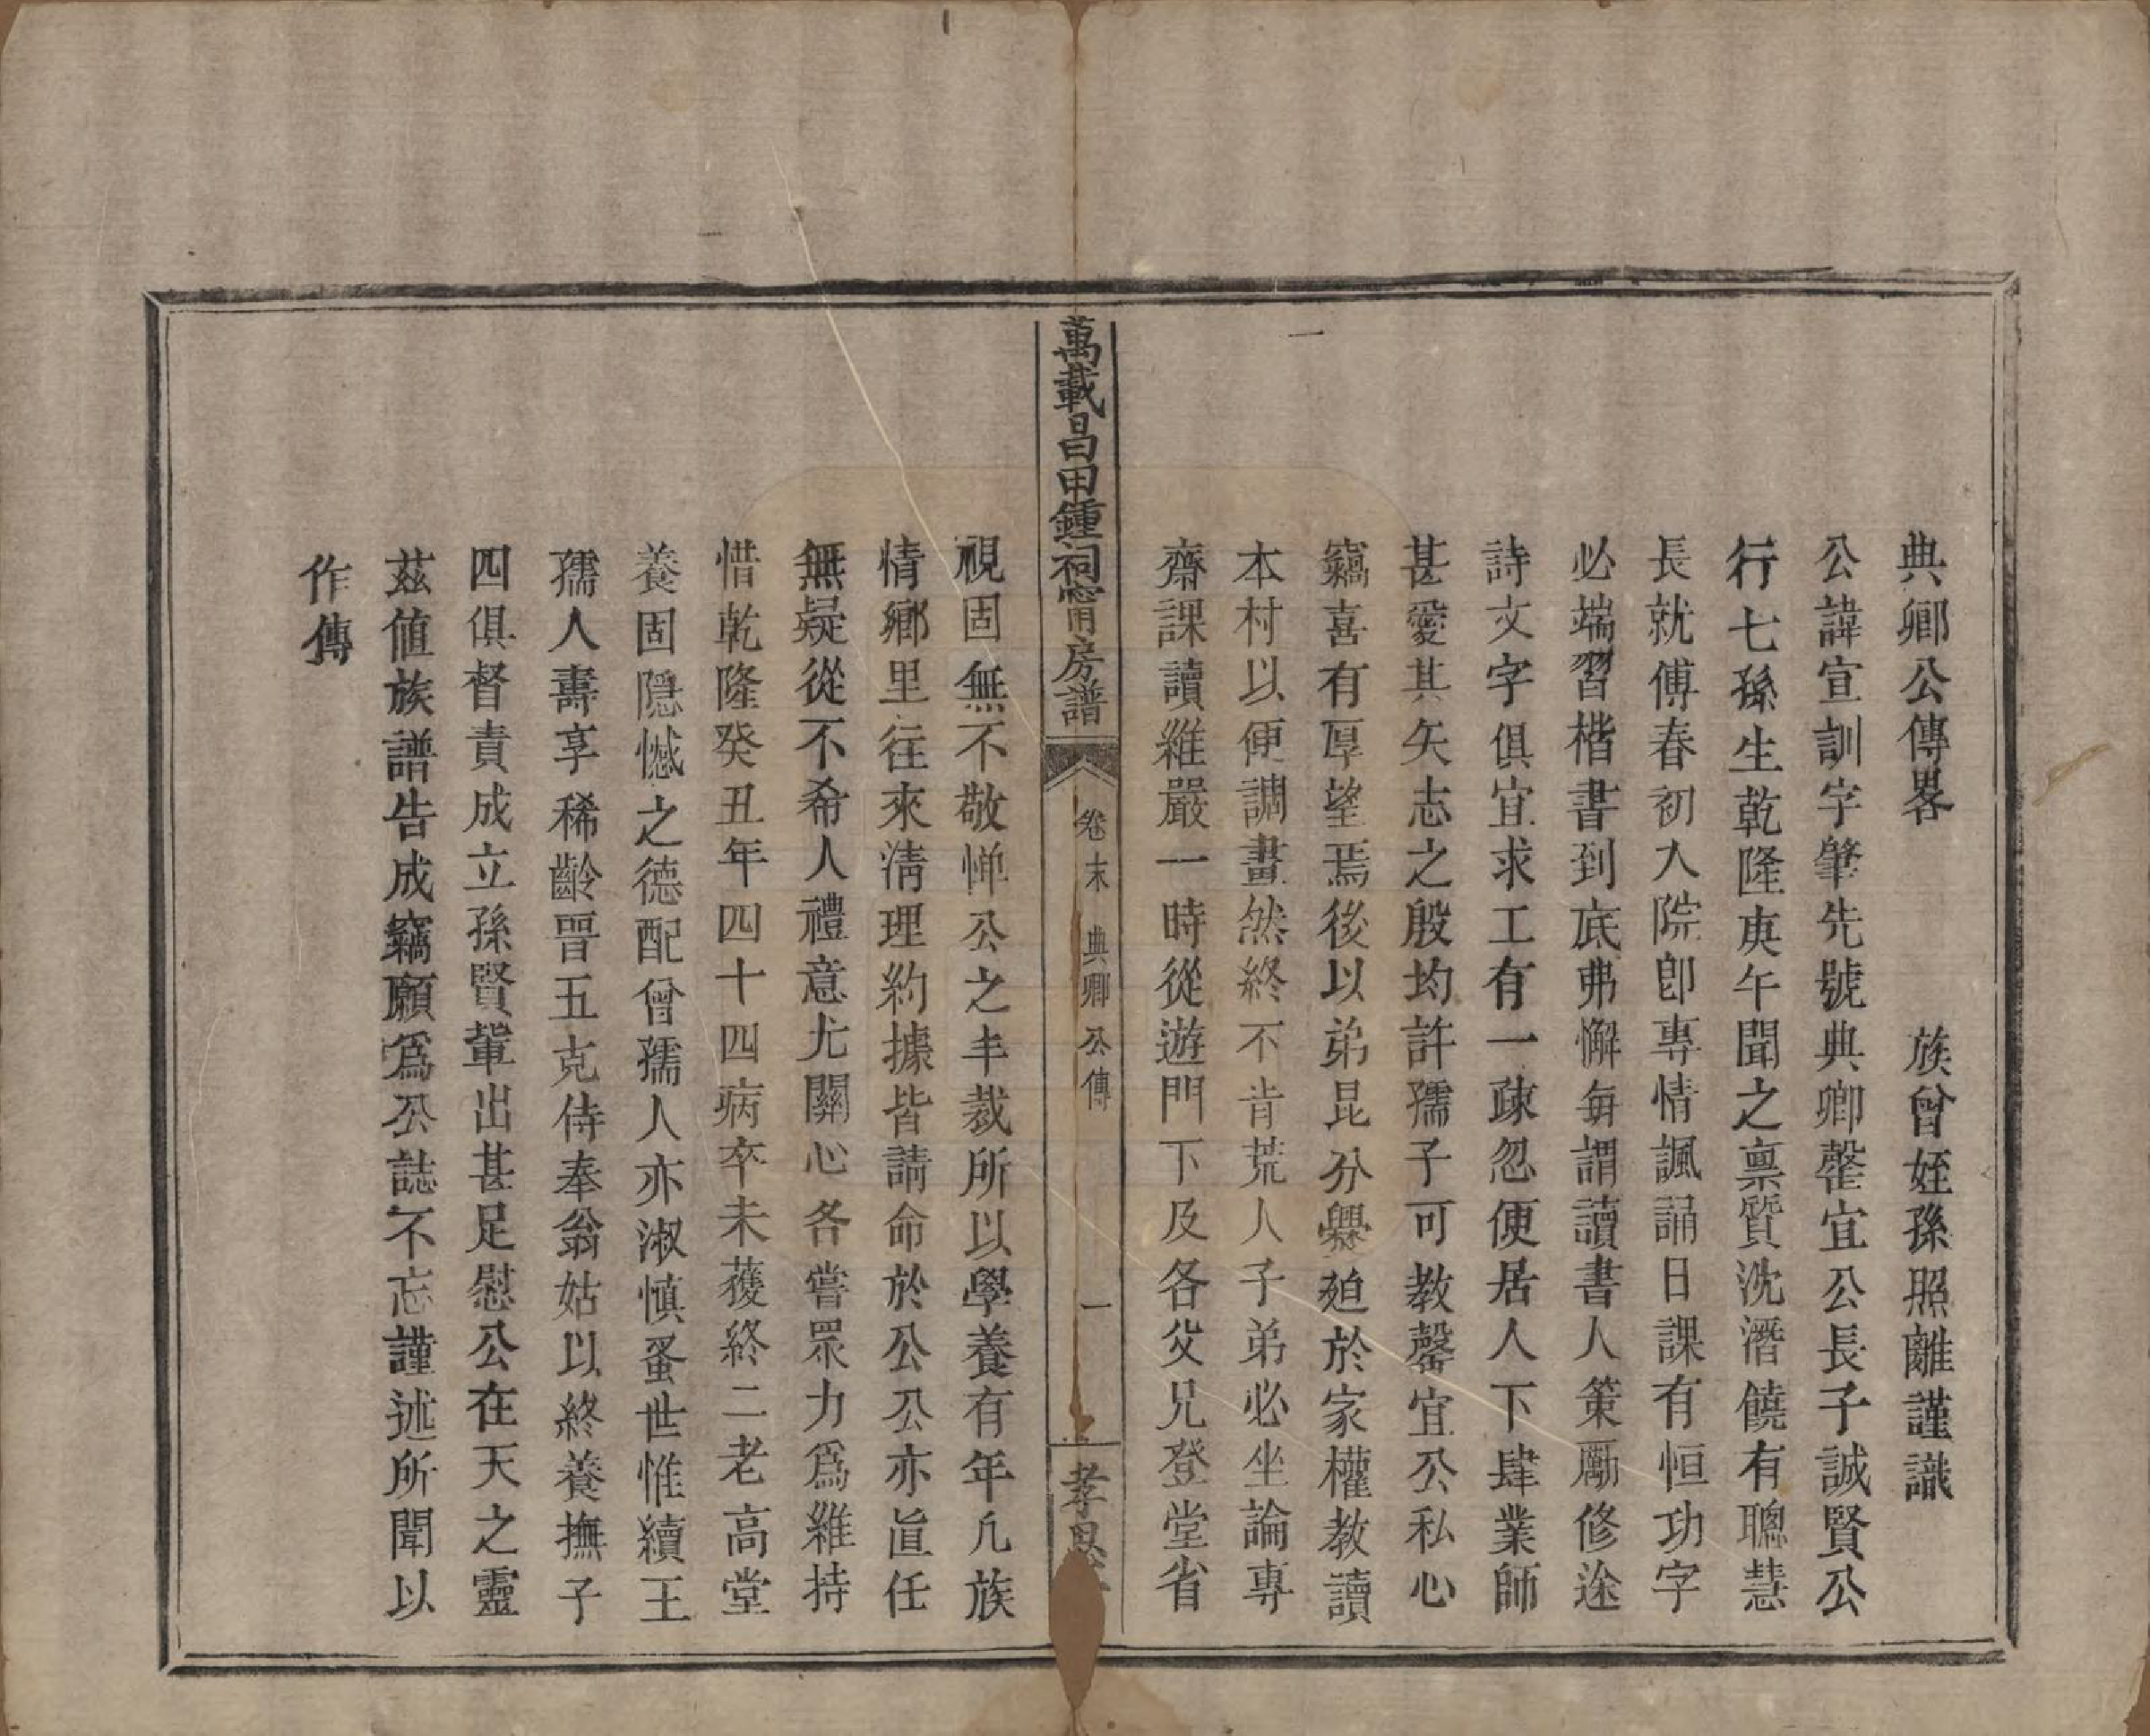 典卿公傳畧 族曾姪孫照離謹識
公諱宣訓字肇先號典卿罄宜公長子誠賢公
行七孫生乾隆庚午聞之禀質沈潛饒有聰慧
長就傅春初入院卽專情諷誦日課有恒功字
必端習楷書到底弗懈每謂讀書人策勵修途
詩文字俱宜求工有一疎忽便居人下肆業師
甚愛其矢志之殷均許孺子可教罄宜公私心
竊喜有厚望焉後以弟昆分爨廹於家權教讀
本村以便調畫然終不肯荒人子弟必坐論專
齋課讀維嚴一時從遊門下及各父兄登堂省
萬載昌田鍾祠甯房譜 卷末 典卿公傳 一 孝思
視固無不敬憚公之丰裁所以學養有年凡族
情鄉里往來淸理約據皆請命於公公亦直任
無疑從不希人禮意尤關心各嘗眾力爲維持
惜乾隆癸丑年四十四病卒未獲終二老高堂
養固隱憾之德配曾孺人亦淑慎蚤世惟續王
孺人壽享稀齡晉五克侍奉翁姑以終養撫子
四俱督責成立孫賢輩出甚足慰公在天之靈
茲値族譜告成竊願爲公誌不忘謹述所聞以
作傳